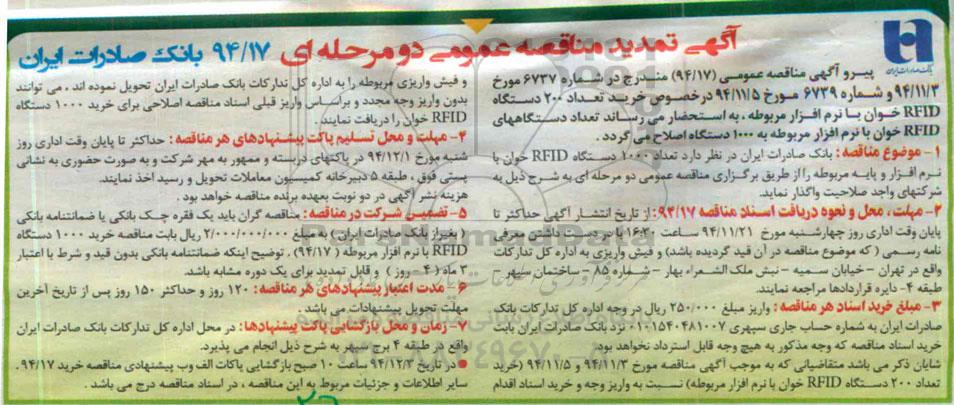 آگهی تمدید مناقصه عمومی دو مرحله ای ۹۴/۱۷ بانک صادرات ایران
بانک صادرات ایران
پیرو آگهی مناقصه عمومی (۹۴/۱۷) مندرج در شماره ۶۷۳۷ مورخ
۹۴/۱۱/۳ و شماره ۶۷۳۹ مورخ ۹۴/۱۱/۵ درخصوص خرید تعداد ۲۰۰ دستگاه
RFID خوان با نرم افزار مربوطه ، به استحضار می رساند تعداد دستگاههای
RFID خوان با نرم افزار مربوطه به ۱۰۰۰ دستگاه اصلاح می گردد .
۱- موضوع مناقصه : بانک صادرات ایران در نظر دارد تعداد ۱۰۰۰ دستگاه RFID خوان با
نرم افزار و پایه مربوطه را از طریق برگزاری مناقصه عمومی دو مرحله ای به شرح ذیل به
شرکتهای واجد صلاحیت واگذار نماید.
۲- مهلت ، محل و نحوه دریافت اسناد مناقصه ۹۴/۱۷: از تاریخ انتشار آگهی حداکثر تا
پایان وقت اداری روز چهارشنبه مورخ ۹۴/۱۱/۲۱ ساعت ۱۶:۲۰ با در دست داشتن معرفی
نامه رسمی ( که موضوع مناقصه در آن قید گردیده باشد) و فیش واریزی به اداره کل تدارکات
واقع در تهران - خیابان سمیه - نبش ملک الشعراء بهار - شماره ۸۵ - ساختمان سپهر -
طبقه ۴- دایره قراردادها مراجعه نمایند.
۳- مبلغ خرید اسناد هر مناقصه : واریز مبلغ ۲۵۰/۰۰۰ ریال در وجه اداره کل تدارکات بانک
صادرات ایران به شماره حساب جاری سپهری ۰۱۰۱۵۴۰۴۸۱۰۰۷ نزد بانک صادرات ایران بابت
خرید اسناد مناقصه که وجه مذکور به هیچ وجه قابل استرداد نخواهد بود.
شایان ذکر می باشد متقاضیانی که به موجب آگهی مناقصه مورخ ۹۴/۱۱/۳ و ۹۴/۱۱/۵ (خرید
تعداد ۲۰۰ دستگاه RFID خوان با نرم افزار مربوطه) نسبت به واریز وجه و خرید اسناد اقدام
و فیش واریزی مربوطه را به اداره کل تدارکات بانک صادرات ایران تحویل نموده اند ، می توانند
بدون واریز وجه مجدد و براساس واریز قبلی اسناد مناقصه اصلاحی برای خرید ۱۰۰۰ دستگاه
RFID خوان را دریافت نمایند .
۴- مهلت و محل تسلیم پاکت پیشنهادهای هر مناقصه : حداکثر تا پایان وقت اداری روز
شنبه مورخ ۹۴/۱۲/۱ در پاکتهای دربسته و ممهور به مهر شرکت و به صورت حضوری به نشانی
پستی فوق ، طبقه ۵ دبیرخانه کمیسیون معاملات تحویل و رسید اخذ نمایند.
هزینه نشر آگهی در دو نوبت بعهده برنده مناقصه خواهد بود .
۵- تضمین شرکت در مناقصه : مناقصه گران باید یک فقره چک بانکی یا ضمانتنامه بانکی
( بغیر از بانک صادرات ایران ) به مبلغ ۲/۰۰۰/۰۰۰/۰۰۰ ریال بابت مناقصه خرید ۱۰۰۰ دستگاه
RFID با نرم افزار مربوطه ( ۹۴/۱۷) ، توضیح اینکه ضمانتنامه بانکی بدون قید و شرط با اعتبار
۳ ماه ( روز ) و قابل تمدید برای یک دوره مشابه باشد.
۶- مدت اعتبار پیشنهادهای هر مناقصه : ۱۲۰ روز و حداکثر ۱۵۰ روز پس از تاریخ آخرین
مهلت تحویل پیشنهادات می باشد.
۷- زمان و محل بازگشایی پاکت پیشنهادها: در محل اداره کل تدارکات بانک صادرات ایران
واقع در طبقه ۴ برج سپهر به شرح ذیل انجام می پذیرد.
● در تاریخ ۹۴/۱۲/۲ ساعت ۱۰ صبح بازگشایی پاکات الف و ب پیشنهادی مناقصه خرید ۹۴/۱۷.
سایر اطلاعات و جزئیات مربوط به این مناقصه ، در اسناد مناقصه درج می باشد .
ParsNamadData